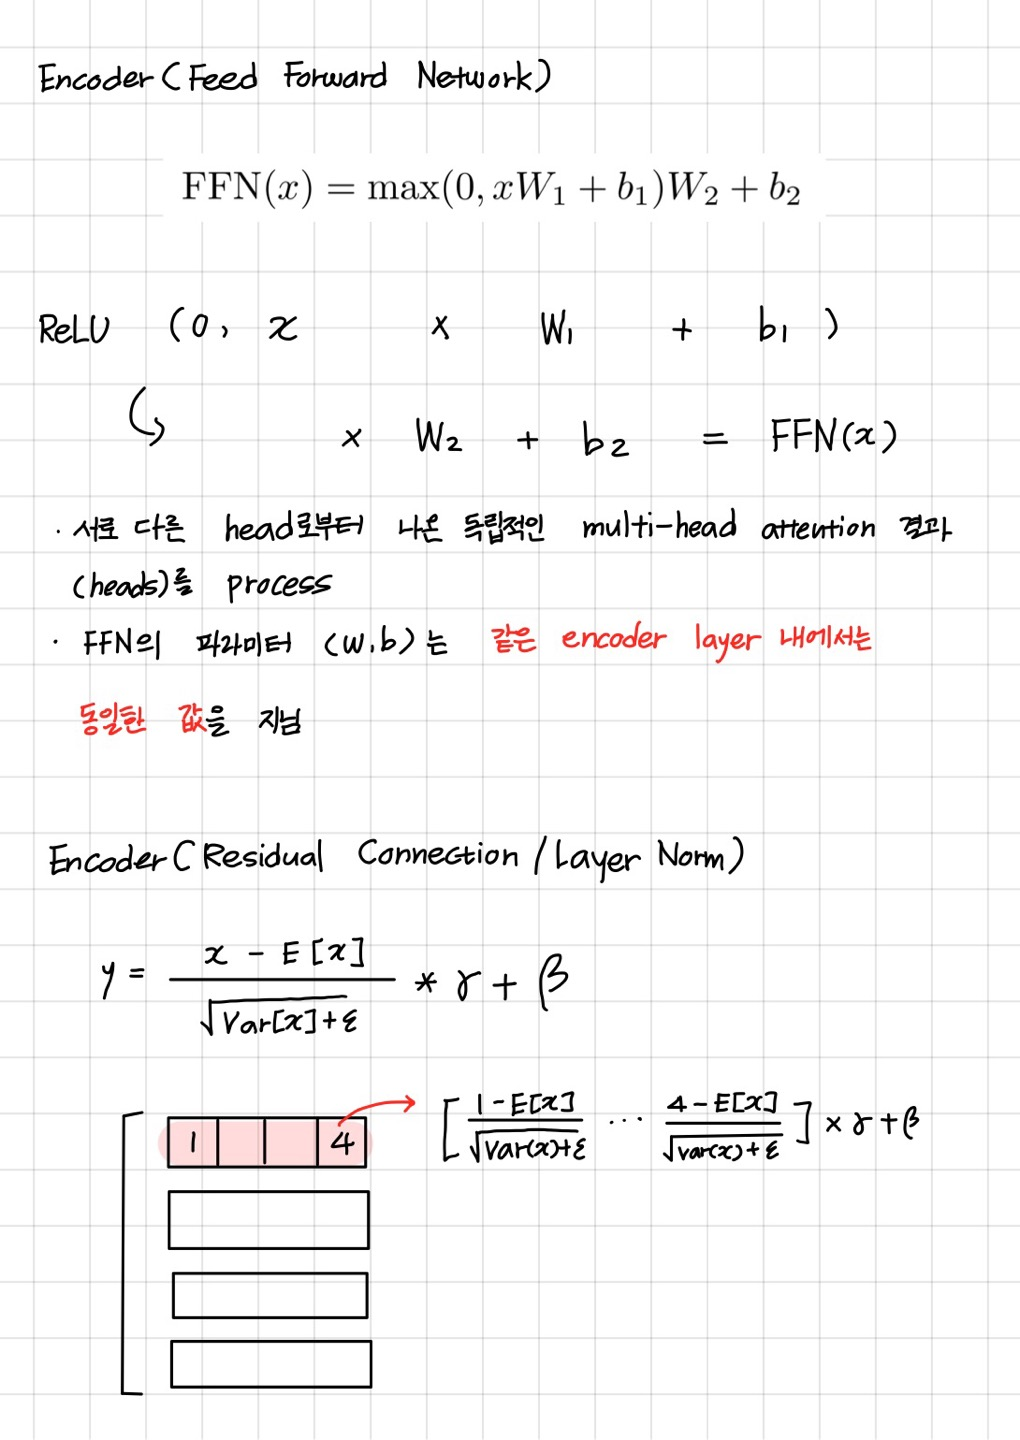 Encoder (Feed Forward Network)
FFN(x) = max(0, xW₁ + b₁)W₂ + b₂
ReLU (0, x × W₁ + b₁ )
× W₂ + b₂ = FFN(x)
· 서로 다른 head로부터 나온 독립적인 multi-head attention 결과
(heads)를 process
· FFN의 파라미터 (w,b)는 같은 encoder layer 내에서는
동일한 값을 지님
Encoder (Residual Connection / Layer Norm)
y = (x - E[x]) / √(Var[x]+ε) * γ + β
1 4 [ (1-E[x]) / √(Var(x)+ε) ··· (4-E[x]) / √(var(x)+ε) ] × γ + β